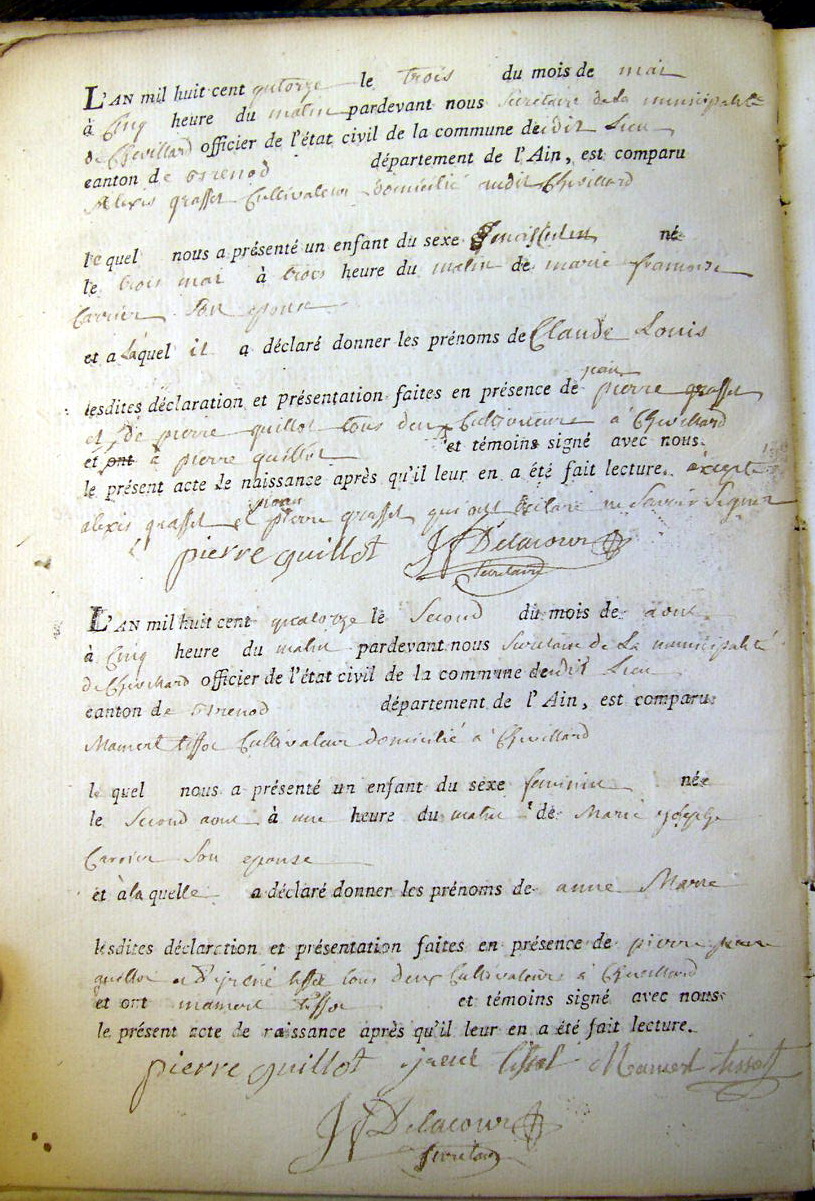 L'AN mil huit cent qutorze le trois du mois de mai
à Cinq heure du matin pardevant nous Secretaire de la municipalité
de Chevillard officier de l'état civil de la commune dudit Lieu
canton de Brenod département de l'Ain, est comparu
Alexis grasset Cultivateur domicilié audit Chevillard
le quel nous a présenté un enfant du sexe masculin né
le trois mai à trois heure du matin de marie francoise
Carrier Son epouse
et a làquel il a déclaré donner les prénoms de Claude Louis
jean
lesdites déclaration et présentation faites en présence de pierre grasset
et de pierre guillot tous deux Cultivateurs à Chevillard
et ont à pierre guillot et témoins signé avec nous
le présent acte de naissance après qu'il leur en a été fait lecture. éxcepté
jean
alexis grasset et pierre grasset qui ont déclaré ne Savoir Signer
pierre guillot Delacour
Secretaire
L'AN mil huit cent quatorze le Second du mois de aout
à Cinq heure du matin pardevant nous Secretaire de La municipalité
de Chevillard officier de l'état civil de la commune dudit Lieu
canton de Brenod département de l'Ain, est comparu
Mamert tissot Cultivateur domicilié à Chevillard
le quel nous a présenté un enfant du sexe feminin née
le Second aout à une heure du matin de Marie
Carrier Son epouse
et à la quelle a déclaré donner les prénoms de anne Marie
lesdites déclaration et présentation faites en présence de pierre
guillot et tissot tous deux Cultivateurs à Chevillard
et ont mamert tissot et témoins signé avec nous
le présent acte de naissance après qu'il leur en a été fait lecture.
pierre guillot tissot Mamert tissot
Delacour
Secretaire